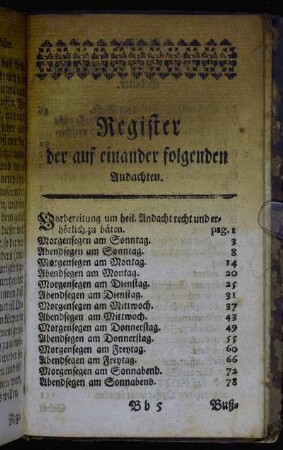 Register
der auf einander folgenden
Andachten.
Vorbereitung um heil. Andacht recht und er-
hörlich zu bäten. pag. 1
Morgensegen am Sonntag. 3
Abendsegen am Sonntag. 8
Morgensegen am Montag. 14
Abendsegen am Montag. 20
Morgensegen am Dienstag. 25
Abendsegen am Dienstag. 31
Morgensegen am Mittwoch. 37
Abendsegen am Mittwoch. 43
Morgensegen am Donnerstag. 49
Abendsegen am Donnerstag. 55
Morgensegen am Freytag. 60
Abendsegen am Freytag. 66
Morgensegen am Sonnabend. 72
Abendsegen am Sonnabend. 78
Bb 5 Buß-